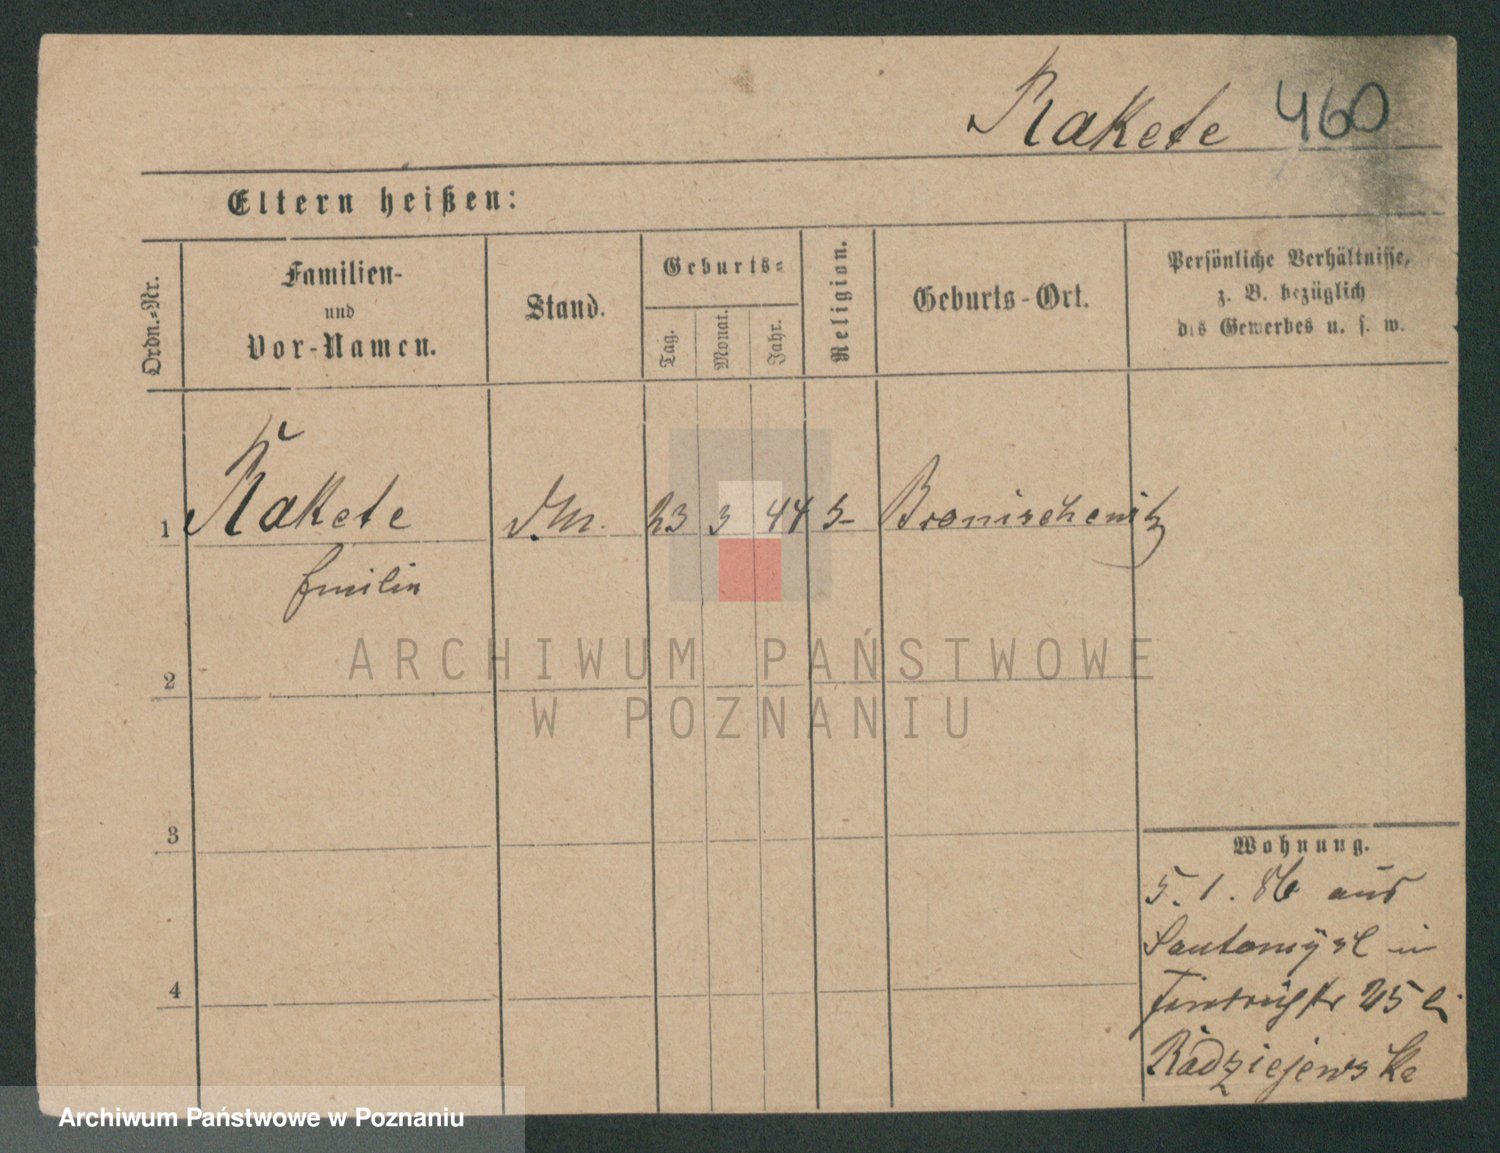 Rakete 460
Eltern heißen:
Ordn.-Nr.
Familien-
und
Vor-Namen.
Stand.
Geburts-
Tag.
Monat.
Jahr.
Religion.
Geburts-Ort.
Persönliche Verhältnisse,
z. B. bezüglich
des Gewerbes u. s. w.
1 Rakete 23 3 44
Emilie
2
3
4
Wohnung.
5. 1. 86 aus
Santomysl in
25 bei
Radziejewska
ARCHIWUM PAŃSTWOWE
W POZNANIU
Archiwum Państwowe w Poznaniu